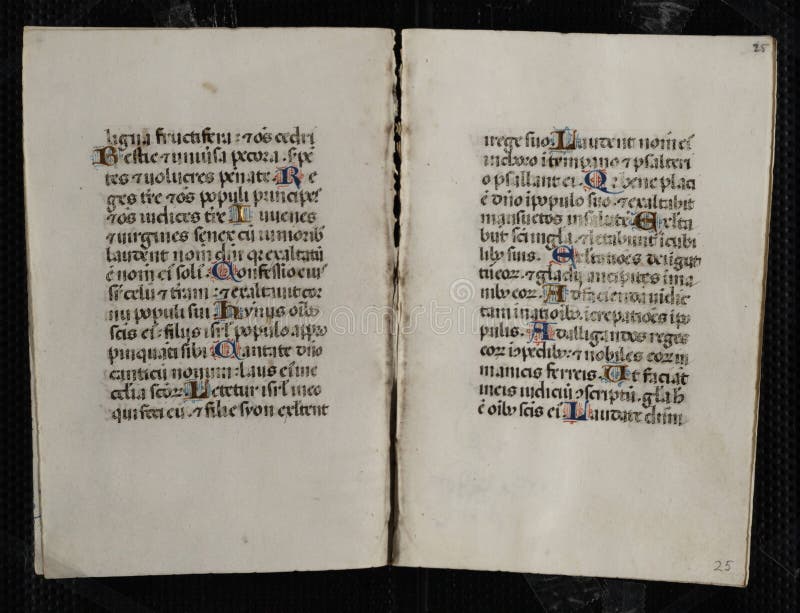 ligna fructifera: ⁊ oẽs cedri
Bestie ⁊ uniũsa pecora. s̃pẽ
tes ⁊ uolucres penate. Re
ges tr̃e ⁊ oẽs populi principes
⁊ oẽs iudices tr̃e Iuuenes
⁊ uirgines senex cũ iuniorib
laudent nom̃ dn̄i qr̃ exaltatũ
ẽ nom̃ ei soli. Confessio eiu
sr̃ celũ ⁊ terram: ⁊ exaltauit cor
nu populi sui Hymnus oĩb
scis ei: filiis isrl̃ populo appro
pinquati sibi. Cantate dño
canticũ nouum: laus ei in e
celia sc̃or. Letetur isrl̃ in eo
qui feci eũ. ⁊ filie syon exltent
25
i rege suo. Laudent nom̃ ei
in choro i tempano ⁊ psalteri
o psallant ei. Q bene placi
ẽ dño i populo suo: ⁊ exaltabit
mansuetos in salute. Exlta
but sc̃i in gl̃a: ⁊ letabunt i cubi
lib suis. Exltatiões dei i gutt
ure eor: ⁊ gladij ancipites i ma
nib eor. Ad faciendã uidic
tam i natioib: icrepatioẽs i po
pulis. Ad alligandos reges
eor i pedib: ⁊ nobiles eor in
manicis ferreis. Ut faciãt
in eis iudiciũ ɔscriptũ. gl̃a h̃
ẽ oĩb scis ei Laudate dñm
25
dreamstime